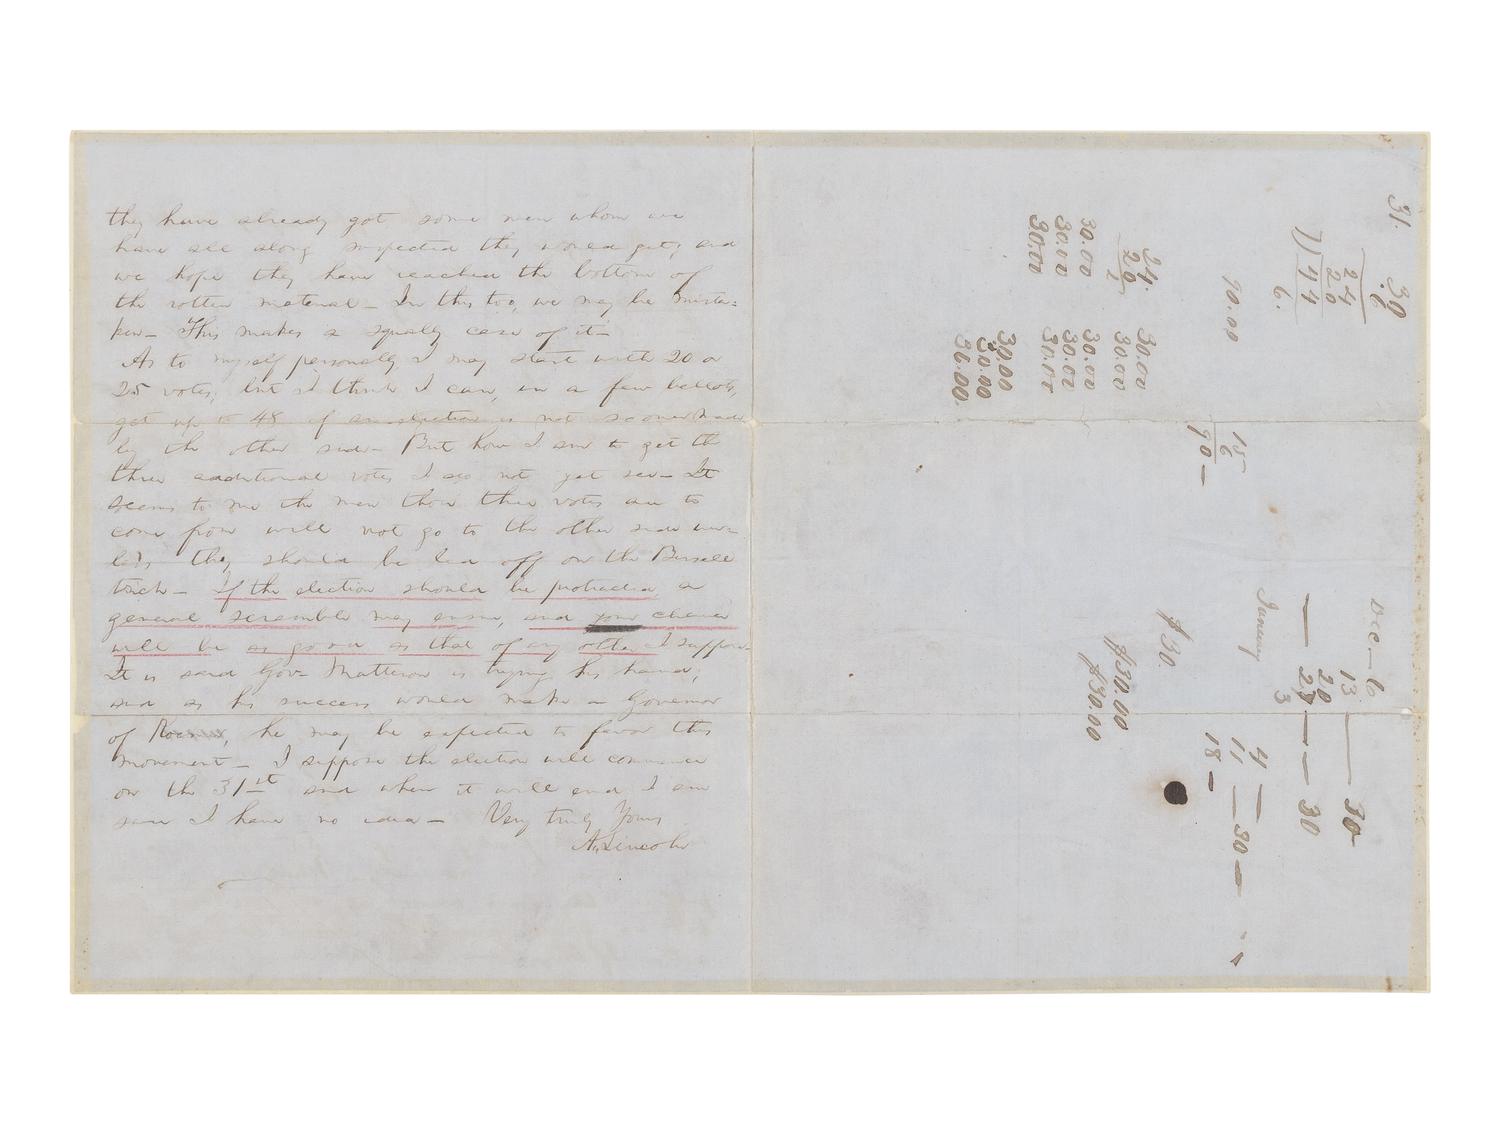 they have already got some men whom we
have all along suspected they would get, and
we hope they have reached the bottom of
the rotten material — In this too, we may be mista=
ken — This makes a squally case of it —
As to myself personally, I may start with 20 or
25 votes, but I think I can, in a few ballots,
get up to 48 if an election is not sooner made
by the other side — But how I am to get the
three additional votes I do not yet see — It
seems to me the men those three votes are to
come from will not go to the other side un=
less they should be led off on the Bissell
trick — If the election should be protracted a
general scramble may ensue, and your chance
will be as good as that of any other I suppose
It is said Gov. Matteson is trying his hand,
and as his success would make a Governor
of Koerner, he may be expected to favor this
movement — I suppose the election will commence
on the 31st and when it will end, I am
sure I have no idea — Very truly Yours
A. Lincoln
31.
30
6
24
20
1) 44
6.
90.00
24.
20
2
30.00
30.00
30.00
30.00
30.00
30.00
30.00
30.00
30.00
30.00
36.00
15
6
90 —
Dec — 6
13 — 30
20
27 — — 30
3
January
4 —
11 — 30 —
18 —
$30.
$30.00
$30.00